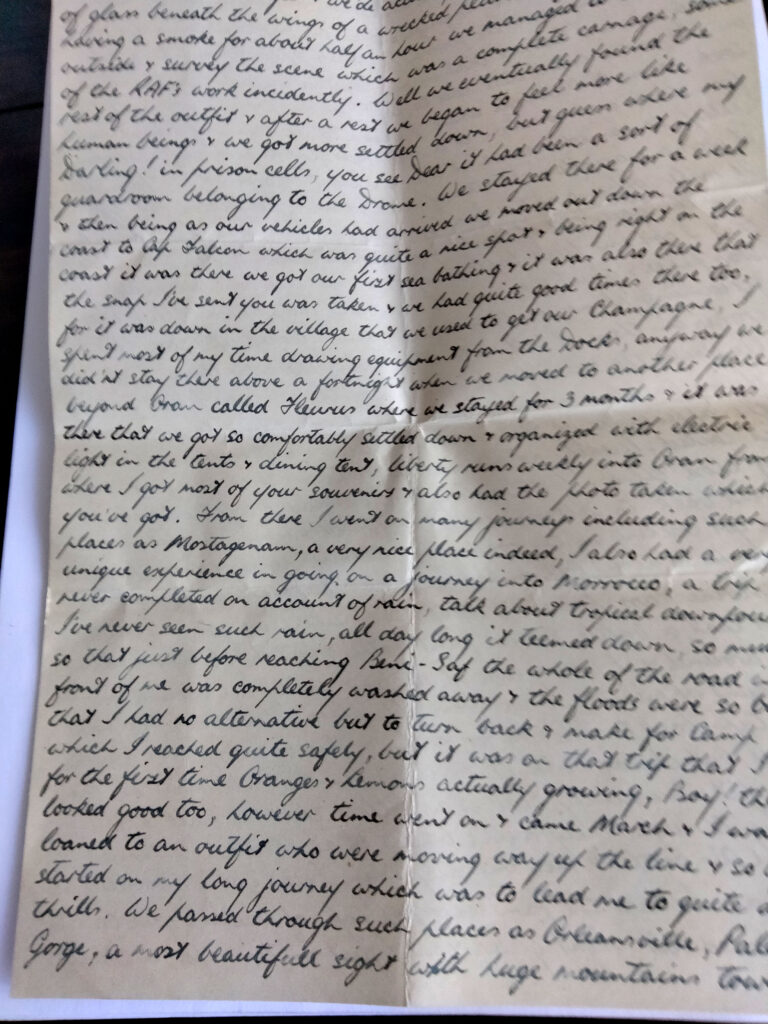 of glass beneath the wings of a wrecked
having a smoke for about half an hour we managed to
outside & survey the scene which was a complete carnage, some
of the RAF's work incidently. Well we eventually found the
rest of the outfit & after a rest we began to feel more like
human beings & we got more settled down, but guess where my
Darling! in prison cells, you see Dear it had been a sort of
guardroom belonging to the Drome. We stayed there for a week
& then being as our vehicles had arrived we moved out down the
coast to Cap Falcon which was quite a nice spot & being right on the
coast it was there we got our first sea bathing & it was also there that
the snap I've sent you was taken & we had quite good times there too,
for it was down in the village that we used to get our Champagne, I
spent most of my time drawing equipment from the Docks, anyway we
did'nt stay there above a fortnight when we moved to another place
beyond Oran called Fleurus where we stayed for 3 months & it was
there that we got so comfortably settled down & organized with electric
light in the tents & dining tent, liberty runs weekly into Oran from
where I got most of your souvenirs & also had the photo taken which
you've got. From there I went on many journeys including such
places as Mostagenam, a very nice place indeed, I also had a very
unique experience in going on a journey into Morrocco, a trip
never completed on account of rain, talk about tropical downpou
I've never seen such rain, all day long it teemed down, so mu
so that just before reaching Beni-Saf the whole of the road i
front of me was completely washed away & the floods were so b
that I had no alternative but to turn back & make for Camp
which I reached quite safely, but it was on that trip that I
for the first time Oranges & Lemons actually growing, Boy! th
looked good too, however time went on & came March & I wa
loaned to an outfit who were moving way up the line & so
started on my long journey which was to lead me to quite a
thrills. We passed through such places as Orleansville, Pal
Gorge, a most beautifull sight with huge mountains tow